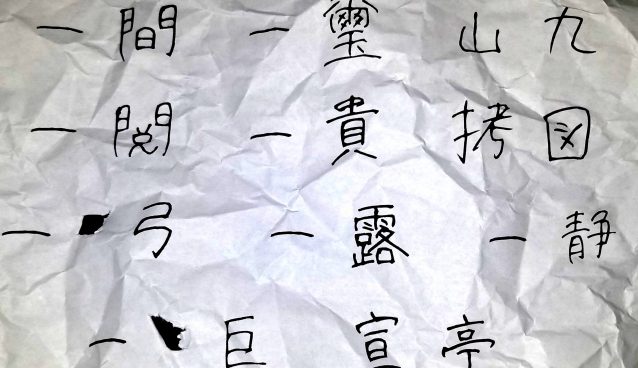 一間 一璽 山九
一閲 一貴 拷図
一 弓 一露 一静
一 巨 宣亭